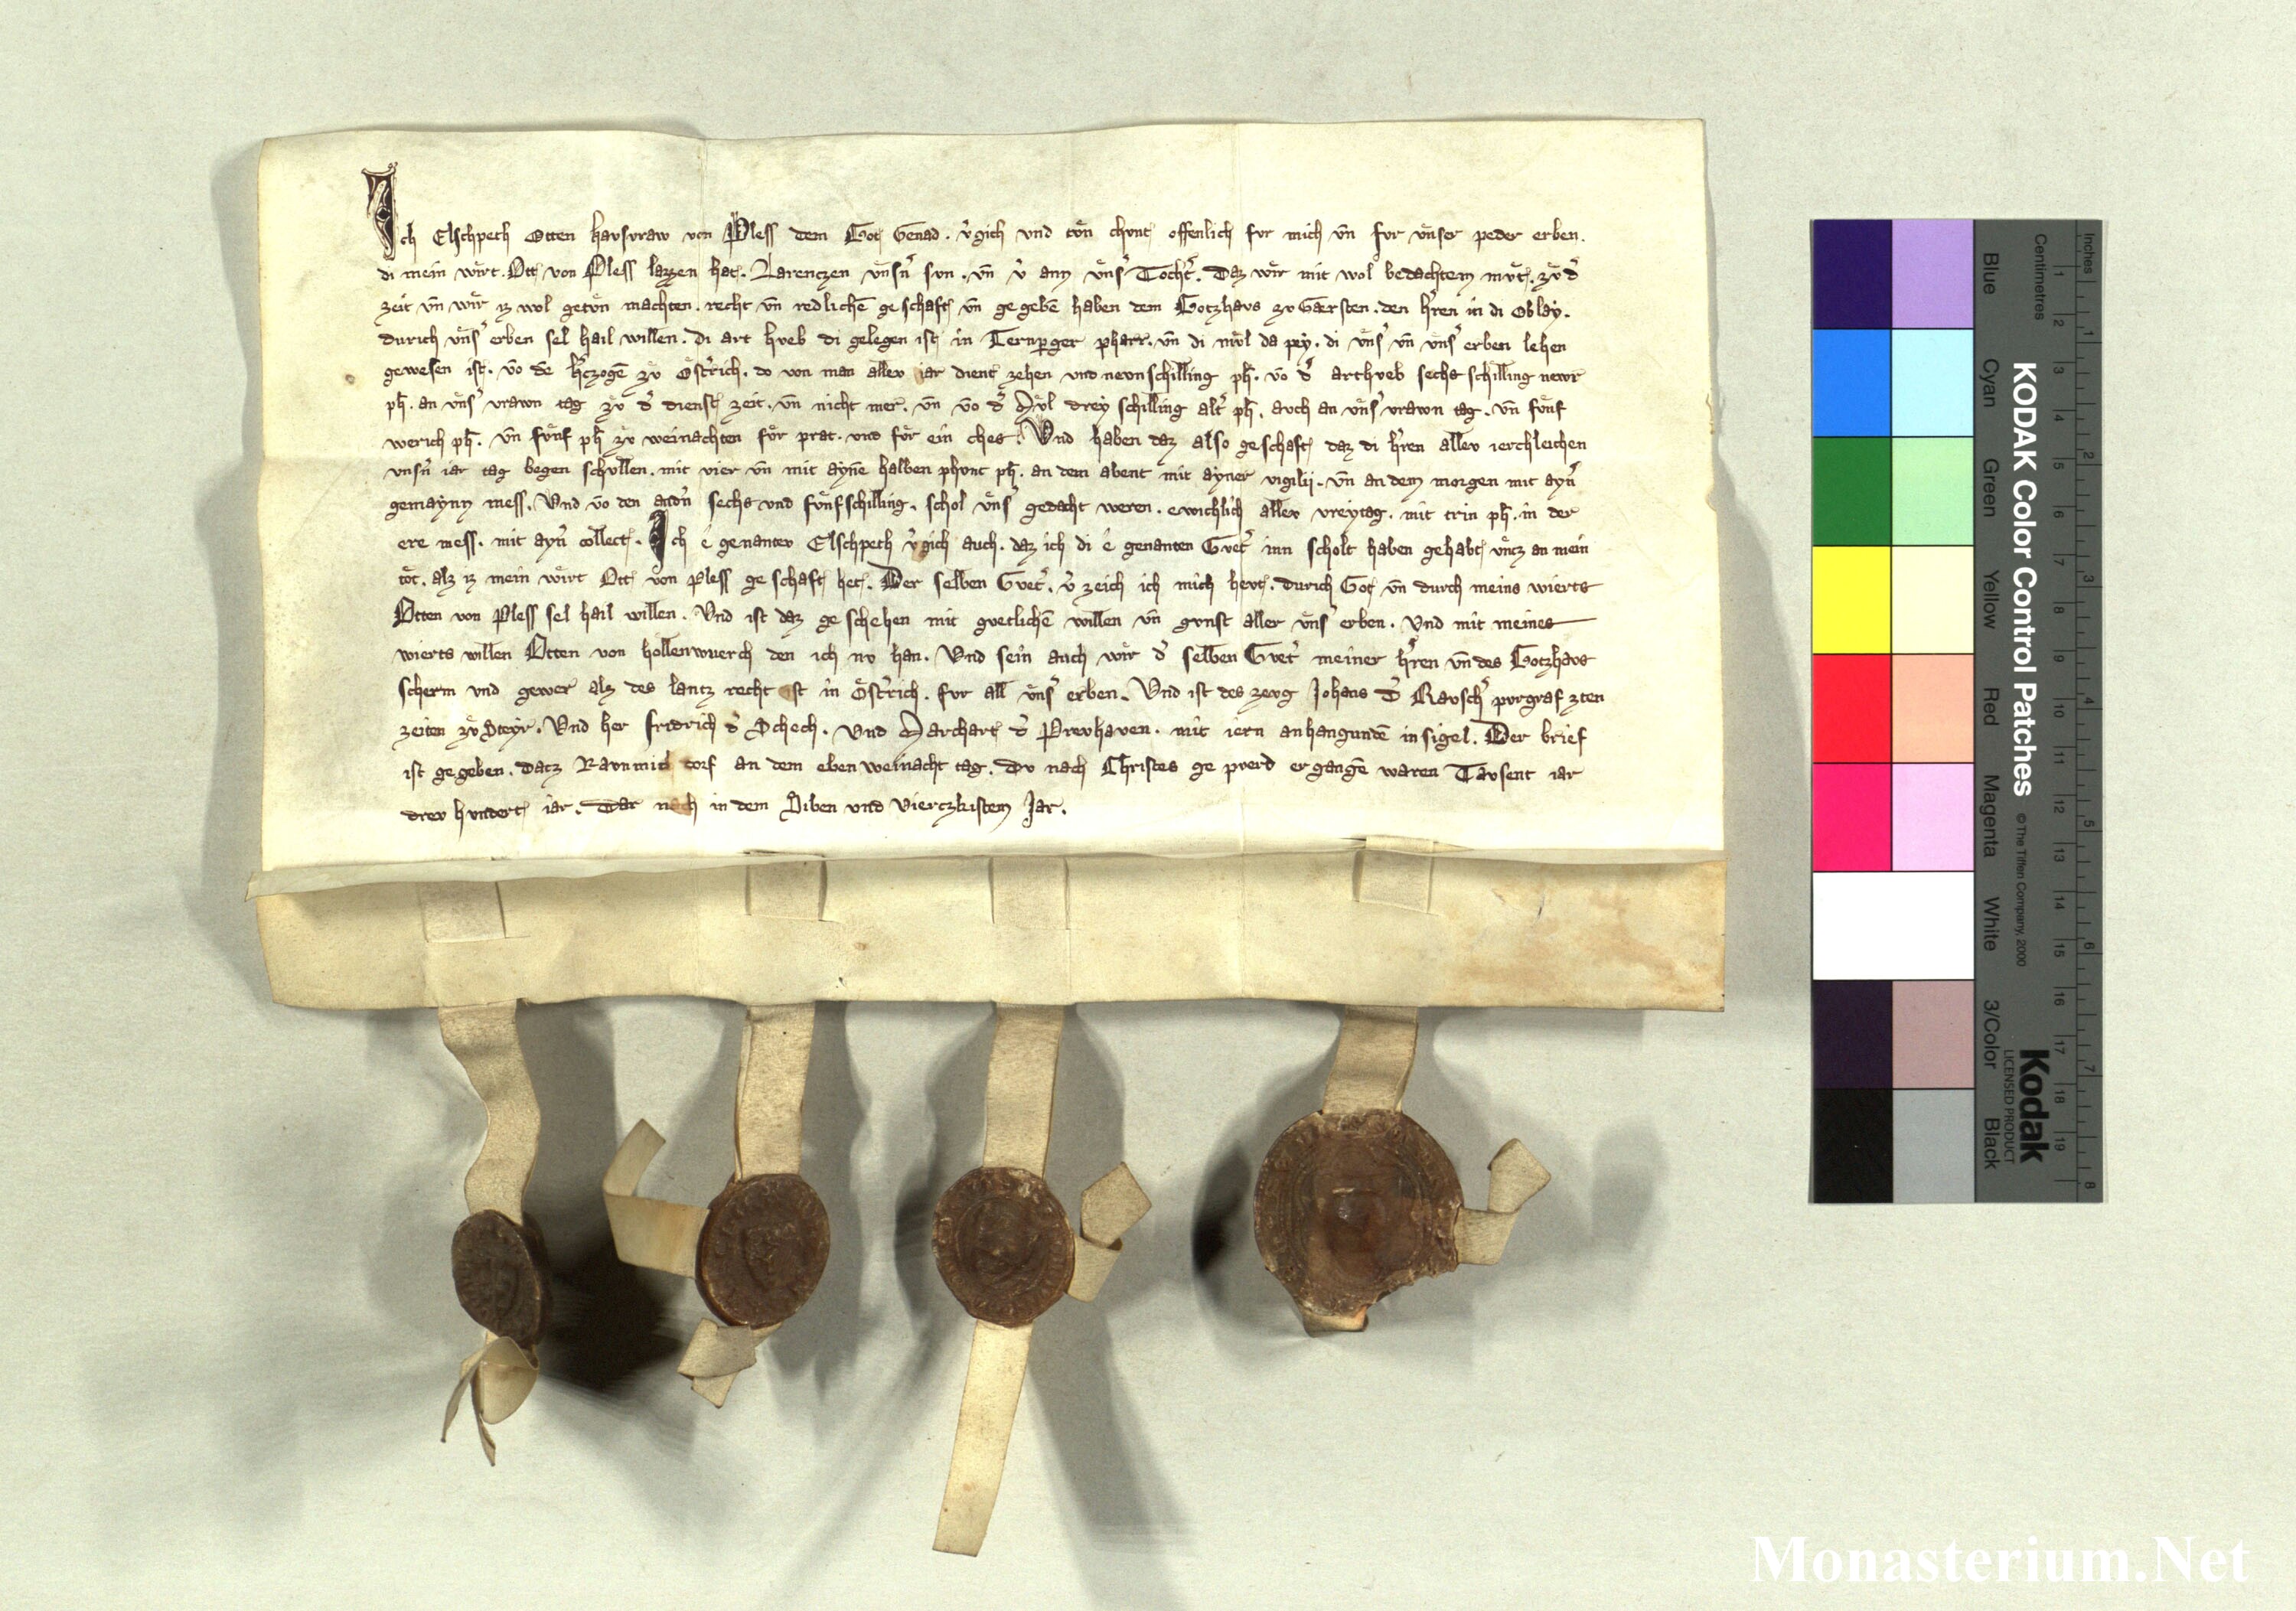 Ich Elschpeth Otten havsvraw von Pless dem Got Genad. v̾gich vnd tv̊n chvnt offenlich fvr mich vn̄ fvr vnser peder erben.
di mein wirt. Ott von Pless lazzen hat. Larenczen vnsn̾ svn. vn̄ v̾ any vns̾ Tocht̾. Daz wir mit wol bedachtem mvͦt. zv d̾
zeit vn̄ wir iz wol getvͦn machten. recht vn̄ redlichē ge schaft vn̄ ge gebē haben dem Gotzhavs zv Gaersten. den h̾ren in di Oblay.
durich vns̾ erben sel hail willen. di art hveb di gelegen ist in Ternp̱ger pharr. vn̄ di mvͦl da pey. di vns̾ vn̄ vns̾ erben lehen
gewesen ist. vō dē h̾czogē zv Öst̾rich. do von man allev iar dient zehen vnd nevn schilling ph̄. vō d̾ arthveb sechs schilling newr
ph̄. an vns̾ vrawn tag zv d̾ dienst zeit. vn̄ nicht mer. vn̄ vō d̾ Mvͦl drey schilling alt̾ ph̄. avch an vns̾ vrawn tag. vn̄ fvnf
werich ph̄. vn̄ fvnf ph̄ zv weinachten fvͦr prat. vnd fvͦr ein ches. Vnd haben daz also ge schaft daz di h̾ren allev ierchleichen
vnsn̄ iar tag begen schvllen. mit vier vn̄ mit aynē halben phvnt ph̄. an dem abent mit ayner vigilij. vn̄ an dem morgen mit ayn̾
gemaynn mess. Vnd vō den andn̾ sechs vnd fvnf schilling. schol vns̾ gedacht weren. ewichlich allev vreytag. mit trin ph̄. in der
ere mess. mit ayn̄ collect. Ich é genantev Elschpeth v̾gich auch. daz ich di é genanten Gvet̾ inn scholt haben gehabt vncz an mein
tot. alz iz mein wirt Ott von Pless ge schaft het. Der selben Gvet̾. v̾ zeich ich mich hevt. durich Got vn̄ durch meins wierts
Otten von Pless sel hail willen. Vnd ist daz ge schehen mit gvetlichē willen vn̄ gvnst aller vns̾ erben. Vnd mit meines
wierts willen Otten von hollenwuerch den ich nv han. Vnd sein auch wir d̾ selben Gvet̾ meiner h̾ren vn̄ des Gotzhavs
scherm vnd gewer alz des lantz recht ist in Öst̾rich. fvr all vns̾ erben. Vnd ist des zevg Johans d̾ Ravsch̾ pvrgraf zten
zeiten zv Steyr. Vnd her fridrich d̾ Schech. Vnd Marchart d̾ Prevhaven. mit iern anhangundē insigel. Der brief
ist ge geben. datz Ravnmich torf an dem eben weinacht tag. Dv nach Christes ge pverd er gangē waren Tavsent iar
drev hvndert iar. Dar nach in dem Siben vnd vierczkistem Jar.
KODAK Color Control Patches
© The Tiffen Company, 2000
Kodak
LICENSED PRODUCT
Blue Cyan Green Yellow Red Magenta White 3/Color Black
Centimetres
1 2 3 4 5 6 7 8 9 10 11 12 13 14 15 16 17 18 19
Inches
1 2 3 4 5 6 7 8
Monasterium.Net